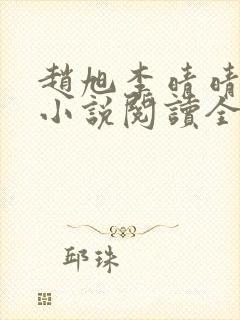 趙旭李晴晴
小說閱讀全
邱珠